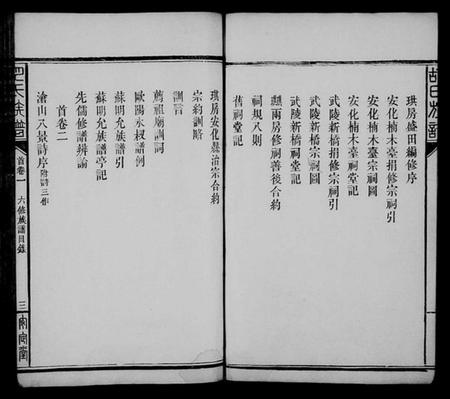 胡氏族譜
珙房盛田編修序
安化楠木臺宗祠引
安化楠木臺捐修宗祠引
武陵新橋捐修宗祠引
武陵新橋宗祠圖
武陵新橋祠堂記
顯兩房修祠善後合約
祠規八則
舊祠堂記
珙房安化縣治宗合約
宗約訓略
訓言
薦祖廟訓詞
歐陽永叔譜例
蘇明允族譜引
蘇明允族譜亭記
先儒修譜辨論
首卷二
滄山八景詩序附詩三作
胡氏族譜
首卷一
六修族譜目錄
三
安定堂